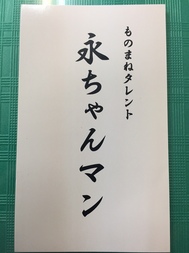 ものまねタレント
永ちゃんマン